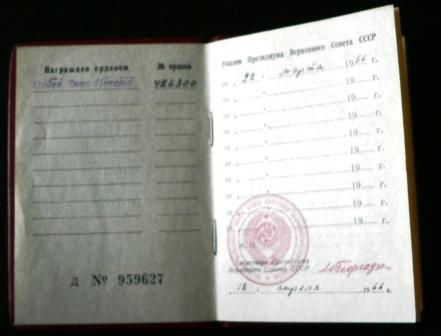 Награжден орденом № ордена
Орден Знак Почета 426300
Д № 959627
Указом Президиума Верховного Совета СССР
от „22“ марта 1966 г.
от „ “ 19 г.
от „ “ 19 г.
от „ “ 19 г.
от „ “ 19 г.
от „ “ 19 г.
от „ “ 19 г.
от „ “ 19 г.
от „ “ 19 г.
М. П.
Секретарь Президиума
Верховного Совета СССР
„18“ апреля 1966 г.